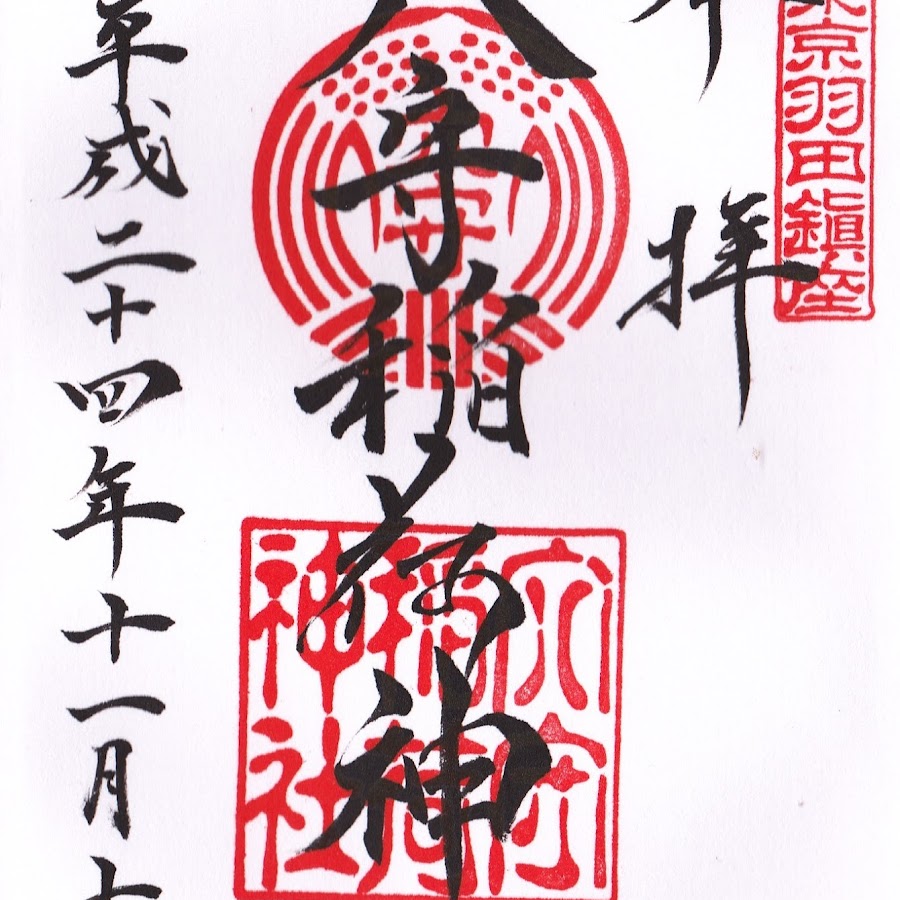 京羽田鎮座
拝
守稲荷神
穴守
稲荷
神社
平成二十四年十一月十